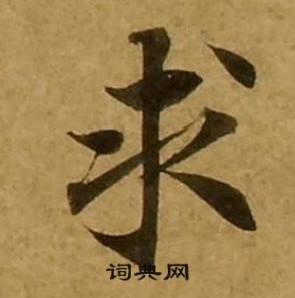 求
词典网